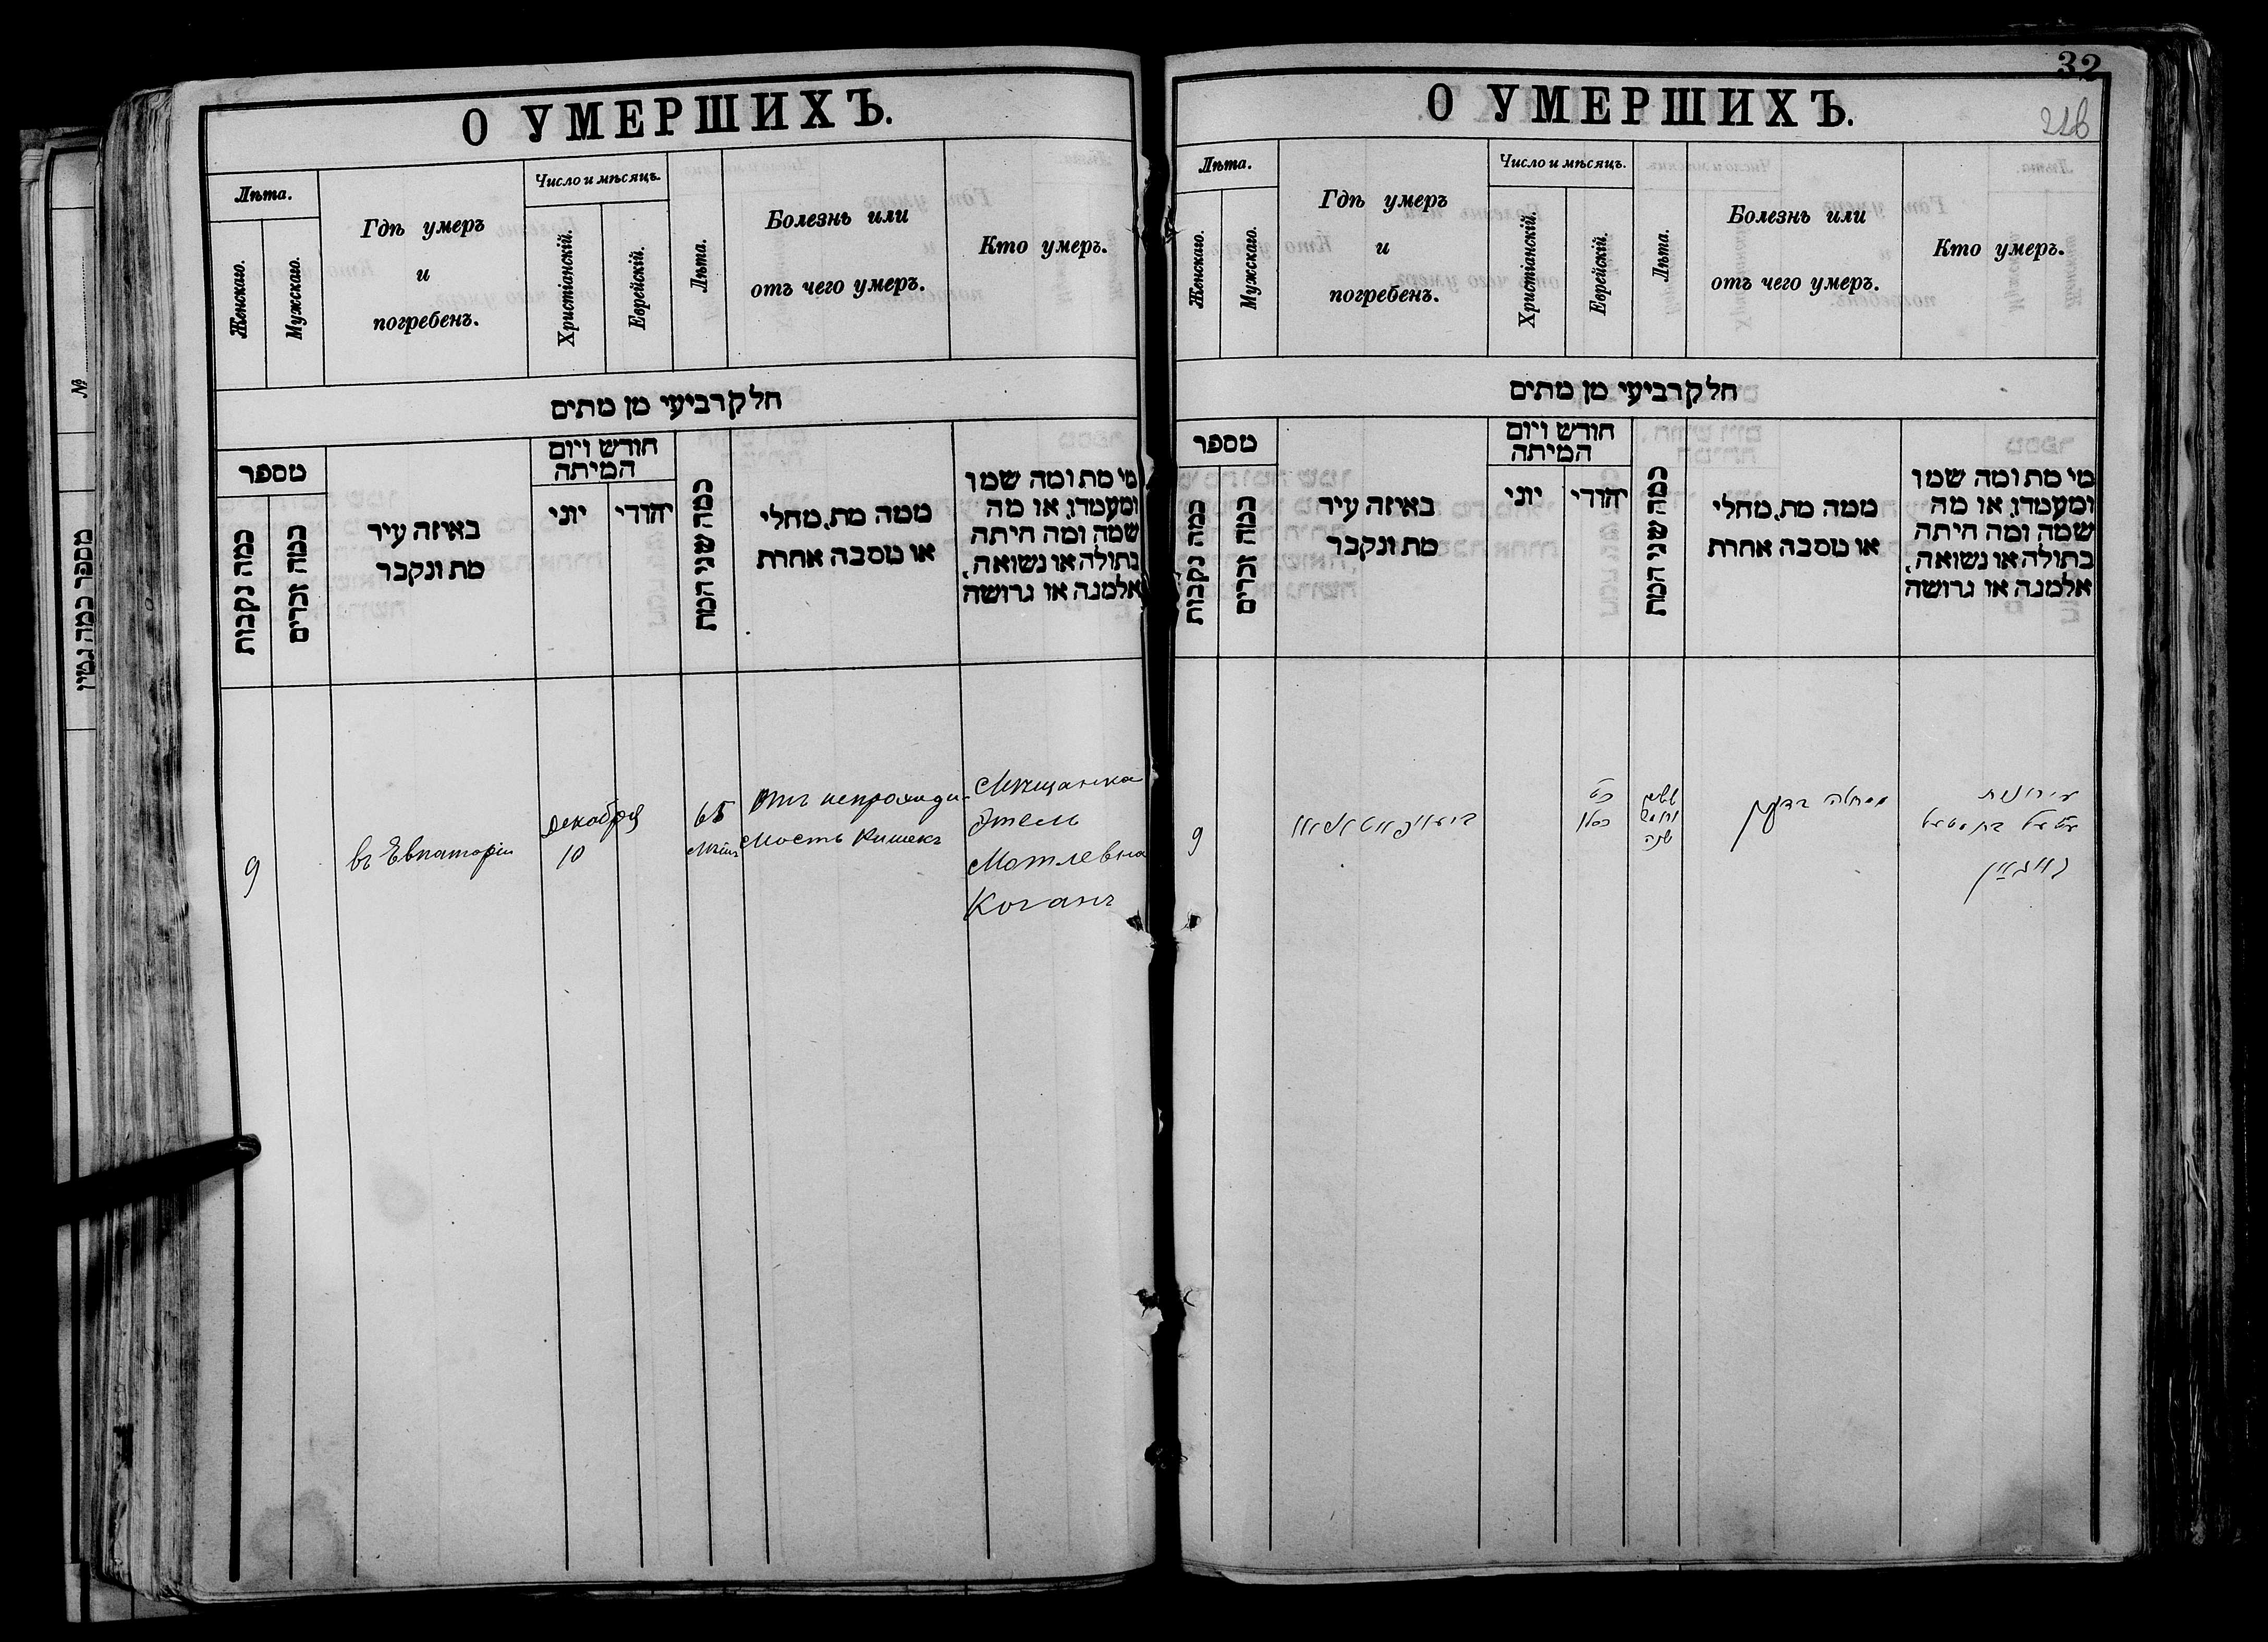 О УМЕРШИХЪ.
Лѣта.
Женскаго.
Мужскаго.
Гдѣ умеръ
и
погребенъ.
Число и мѣсяцъ.
Христіанскій.
Еврейскій.
Лѣта.
Болезнь или
отъ чего умеръ.
Кто умеръ.
חלק רביעי מן מתים
מספר
כמה נקבות
כמה זכרים
באיזה עיר
מת ונקבר
חודש ויום
המיתה
יוני
יהודי
כמה שני המת
ממה מת, מחלי
או מסבה אחרת
מי מת ומה שמו
ומעמדו, או מה
שמה ומה היתה
בתולה או נשואה,
אלמנה או גרושה
9
въ Евпаторіи
Декабря
10
65
лѣтъ
Отъ непроходи-
мость Кишекъ
Мѣщанка
Этель
Мотлевна
Коганъ
№
מספר כמה גטין
32
О УМЕРШИХЪ.
Лѣта.
Женскаго.
Мужскаго.
Гдѣ умеръ
и
погребенъ.
Число и мѣсяцъ.
Христіанскій.
Еврейскій.
Лѣта.
Болезнь или
отъ чего умеръ.
Кто умеръ.
חלק רביעי מן מתים
מספר
כמה נקבות
כמה זכרים
באיזה עיר
מת ונקבר
חודש ויום
המיתה
יוני
יהודי
כמה שני המת
ממה מת, מחלי
או מסבה אחרת
מי מת ומה שמו
ומעמדו, או מה
שמה ומה היתה
בתולה או נשואה,
אלמנה או גרושה
9
כסלו
ששים
וחמש
שנה